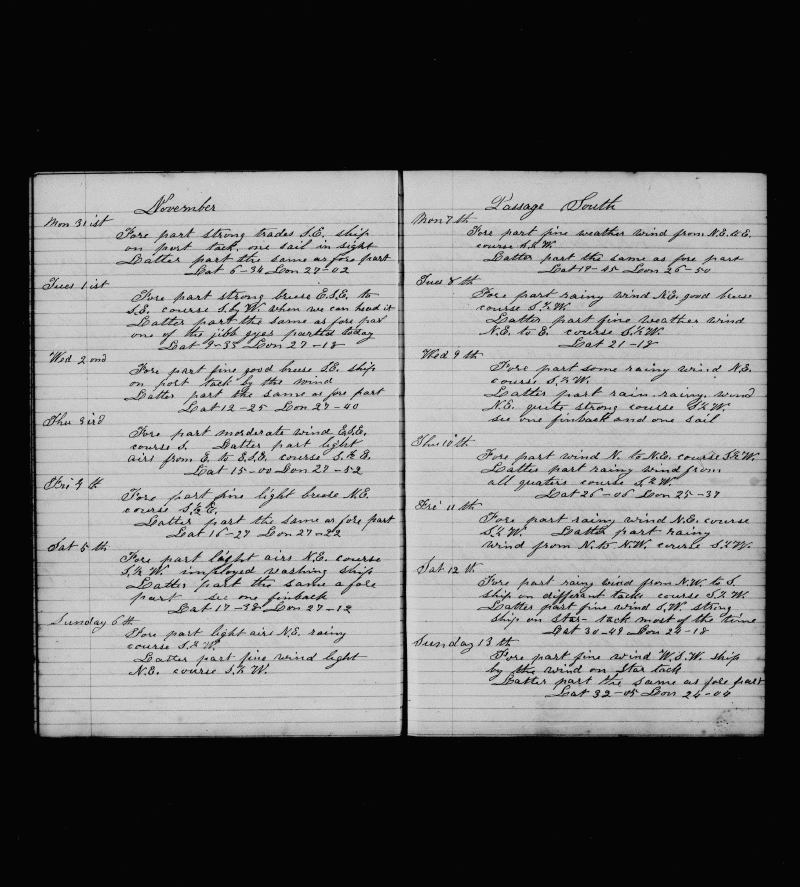 November
Mon 31 ist
Fore part strong trades S.E. ship
on port tack. one sail in sight
Latter part the same as fore part
Lat 6-34 Lon 27-02
Tues 1 ist
Fore part strong breese E.S.E. to
S.E. course S.by W. when we can head it
Latter part the same as fore par
one of the jibb guys parted today
Lat 9-35 Lon 27-18
Wed 2 ond
Fore part fine good breese S.E. ship
on port tack by the wind
Latter part the same as fore part
Lat 12-25 Lon 27-40
Thu 3 ird
Fore part morderate wind E.S.E.
course S. Latter part light
airs from E. to E.S.E. course S.½ E.
Lat 15-00 Lon 27-52
Fri 4 th
Fore part fine light breese N.E.
course S.½ E.
Latter part the same as fore part
Lat 16-27 Lon 27-22
Sat 5 th
Fore part light airs N.E. course
S.½ W. imployed washing ship
Latter part the same a fore
part see one finback
Lat 17-38 Lon 27-12
Sunday 6 th
Fore part light airs N.E. rainy
course S.½ W.
Latter part fine wind light
N.E. course S.½ W.
Passage South
Mon 7 th
Fore part fine weather wind from N.E. & E.
course S.½ W.
Latter part the same as fore part
Lat 19-45 Lon 26-50
Tues 8 th
Fore part rainy wind N.E. good breese
course S.½ W.
Latter part fine weather wind
N.E. to E. course S.½ W.
Lat 21-18
Wed 9 th
Fore part some rainy wind N.E.
course S.½ W.
Latter part rain. rainy. wind
N.E. quite strong course S.½ W.
see one finback and one sail
Thu 10 th
Fore part wind N. to N.E. course S.½ W.
Latter part rainy wind from
all quaters course S.½ W.
Lat 26-06 Lon 25-37
Fri 11 th
Fore part rainy wind N.E. course
S.½ W. Latter part rainy
wind from N. to N.W. course S.½ W.
Sat 12 th
Fore part rainy wind from N.W. to S.
ship on different tacks course S.½ W.
Latter part fine wind S.W. strong
ship on Star- tack most of the time
Lat 30-49 Lon 24-18
Sunday 13 th
Fore part fine wind W.S.W. ship
by the wind on Star tack
Latter part the same as fore part
Lat 32-05 Lon 24-04